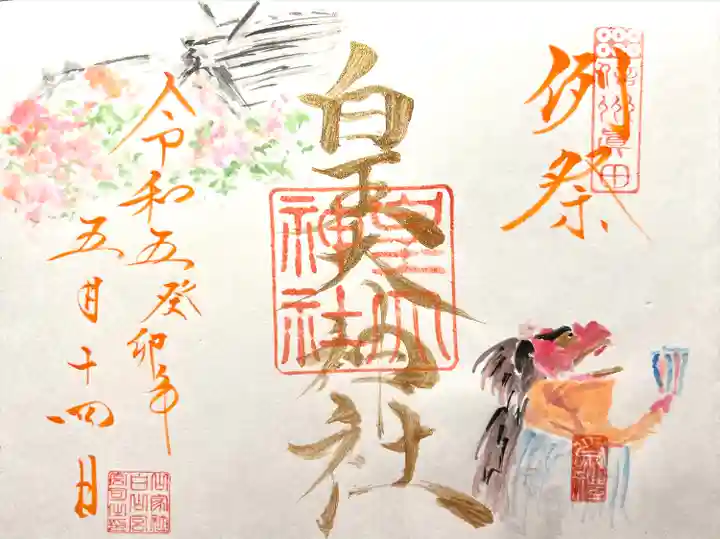 例祭
信州眞田
皇大神社
皇大
神社
令和五癸卯年
五月十四日